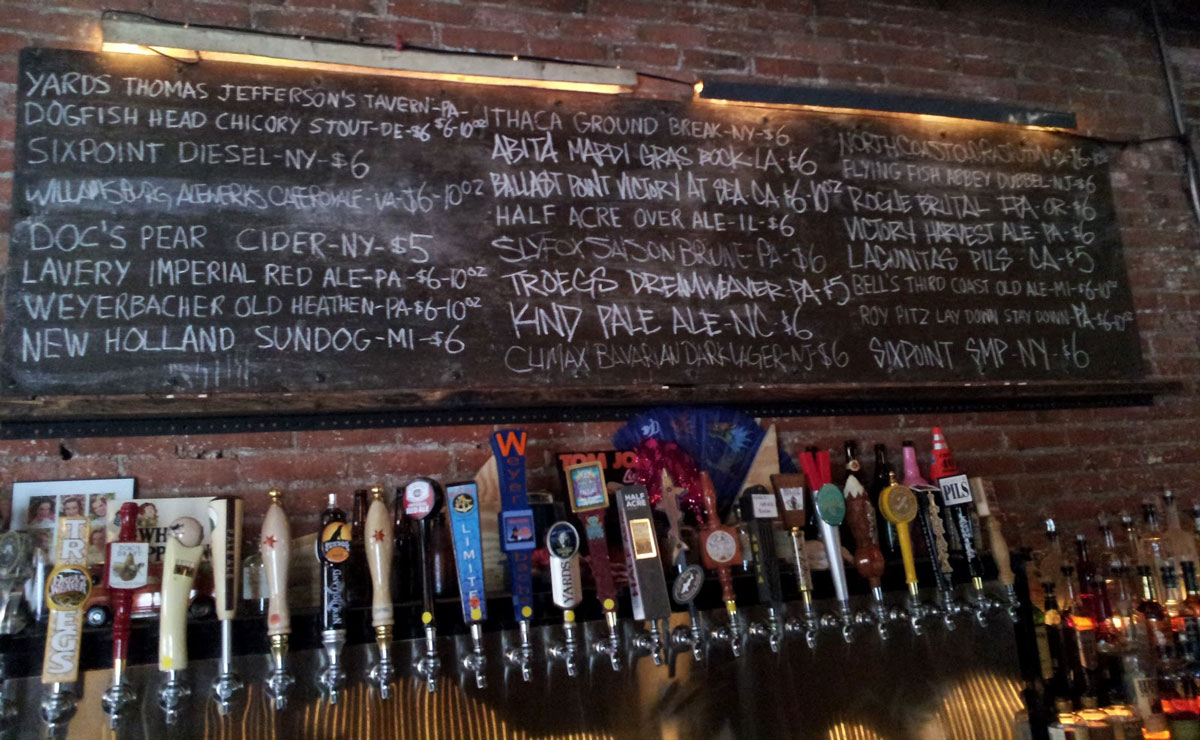 YARDS THOMAS JEFFERSON'S TAVERN-PA- $6-10oz
DOGFISH HEAD CHICORY STOUT-DE-$6
SIXPOINT DIESEL-NY-$6
WILLIAMSBURG ALEWERKS CAFE ROYALE-VA-$6-10oz
DOC'S PEAR CIDER-NY-$5
LAVERY IMPERIAL RED ALE-PA-$6-10oz
WEYERBACHER OLD HEATHEN-PA-$6-10oz
NEW HOLLAND SUNDOG-MI-$6
ITHACA GROUND BREAK-NY-$6
ABITA MARDI GRAS BOCK-LA-$6
BALLAST POINT VICTORY AT SEA CA $6-10oz
HALF ACRE OVER ALE-IL-$6
SLYFOX SAISON BRUNE-PA-$6
TROEGS DREAMWEAVER-PA $5
KIND PALE ALE-NC-$6
CLIMAX BAVARIAN DARK LAGER-NJ-$6
NORTH COAST OLD RASPUTIN
FLYING FISH ABBEY DUBBEL-NJ-$6
ROGUE BRUTAL IPA-OR-$6
VICTORY HARVEST ALE-PA-$6
LAGUNITAS PILS-CA-$5
BELL'S THIRD COAST OLD ALE-MI-$6-10oz
ROY PITZ LAY DOWN STAY DOWN-PA-$6-10oz
SIXPOINT SMP-NY-$6
TROEGS
Weyerbacher
LIMITE
YARDS
HALF ACRE
TOM JO
PILS